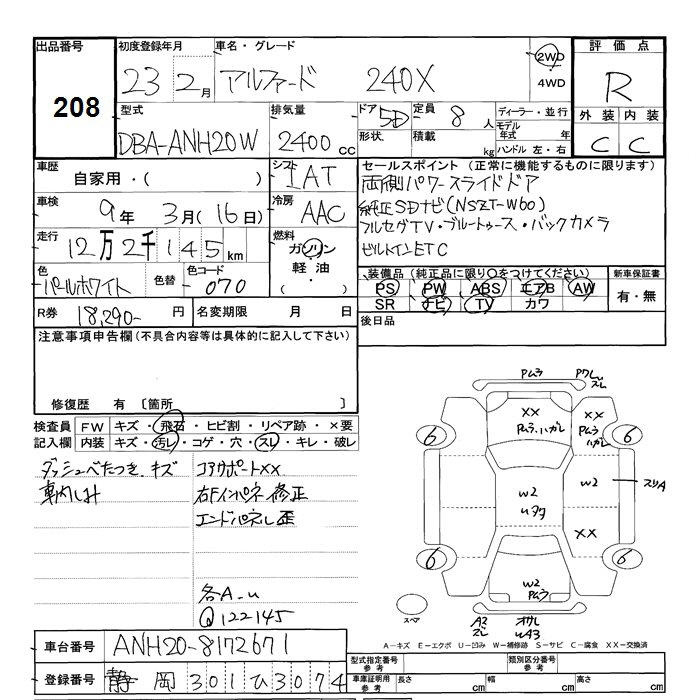 出品番号
208
初度登録年月
23 2月
車名・グレード
アルファード 240X
2WD
・
4WD
評価点
R
外装 内装
C C
型式
DBA-ANH20W
排気量
2400cc
ドア
5D
定員
8人
形状
積載
kg
ディーラー・並行
モデル年式 年
ハンドル 左・右
車歴
自家用・( )
シフト
IAT
車検
9年 3月(16日)
冷房
AAC
走行
12万2千145km
燃料
ガソリン
軽油
・
色
パールホワイト
色替
色コード
070
セールスポイント(正常に機能するものに限ります)
両側パワースライドドア
純正SDナビ(NSZT-W60)
フルセグTV・ブルートゥース・バックカメラ
ビルトインETC
装備品(純正品に限り○をつけてください)
PS PW ABS エアB AW
SR ナビ TV カワ
新車保証書
有・無
後日品
R券
18,290-円
名変期限 月 日
注意事項申告欄(不具合内容等は具体的に記入して下さい)
修復歴 有 〔箇所 〕
検査員 記入欄
FW キズ・飛石・ヒビ割・リペア跡・×要
内装 キズ・汚レ・コゲ・穴・スレ・キレ・破レ
ダッシュベたつき、キズ
車内しみ
コアサポートXX
右Fインパネ修正
エンドパネル歪
各A-u
Q122145
Pムラ
Pワレ
スレ
XX
Pムラ・ハガレ
XX
Pムラ
ハガレ
6
6
6
6
W2
W2
スリA
XX
W2
Pムラ
スペア
A2
uA3
A－キズ E－エクボ U－凹み W－補修跡 S－サビ C－腐食 XX－交換済
車台番号
ANH20-8172671
登録番号
静岡301ひ3074
型式指定番号
参考
類別区分番号
参考
車庫証明用
参考
長さ cm
幅 cm
高さ cm